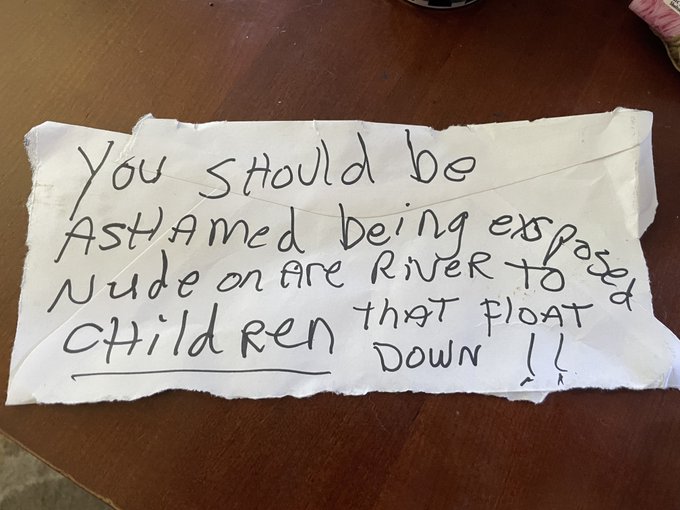 You SHould be
ASHAmed being exsposed
Nude on Are RiVeR To
CHildRen THAT FLOAT
DOWN !!